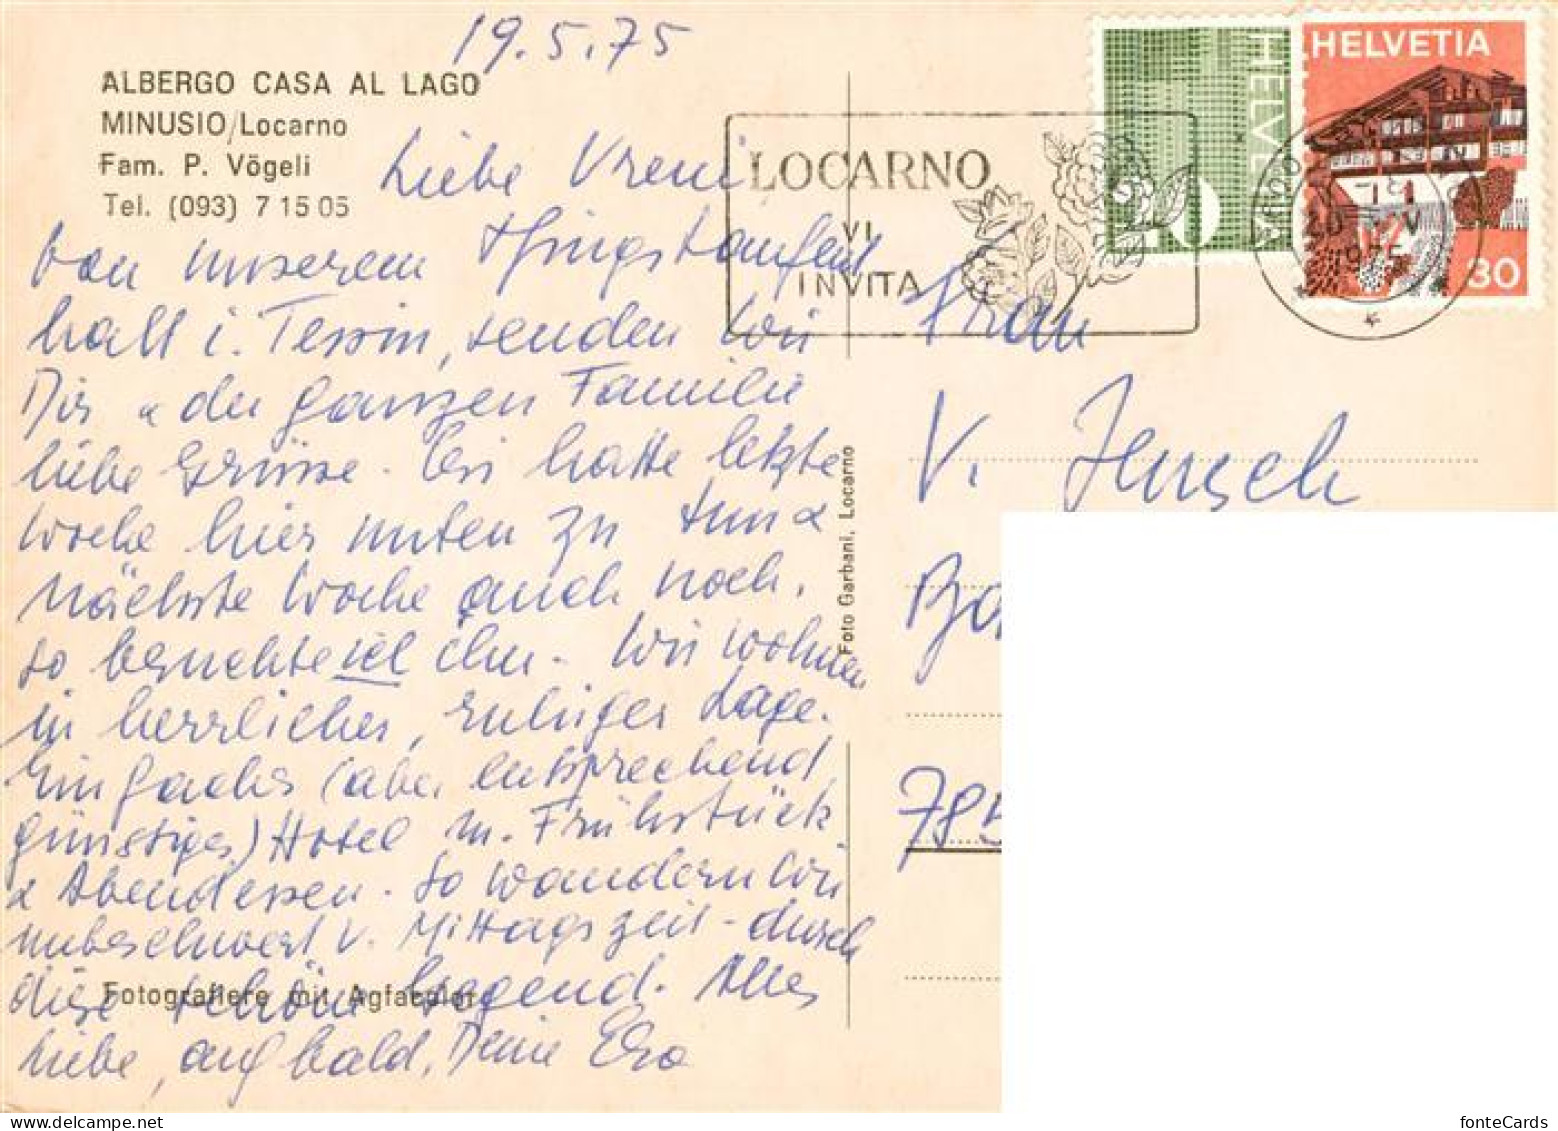 19.5.75
ALBERGO CASA AL LAGO
MINUSIO/Locarno
Fam. P. Vögeli
Tel. (093) 7 15 05
Liebe Vreni,
Von unserem Pfingstaufent
halt i. Tessin, senden wir
Dir & der ganzen Familie
liebe Grüsse. Eri hatte letzte
Woche hier unten zu tun &
nächste Woche auch noch,
so besuchte ich ihn. Wir wohnen
in herrlicher, ruhiger Lage.
Einfaches (aber entsprechend
günstiges) Hotel m. Frühstück
& Abendessen. So wandern wir
unbeschwert v. Mittagszeit - durch
diese schöne Gegend. Alles
Liebe, auf bald, Deine
Fotografiere mit Agfacolor
Foto Garbani, Locarno
LOCARNO
VI
INVITA
HELVETIA
HELVETIA
30
1975
Frau
V. Jensch
785
fonteCards